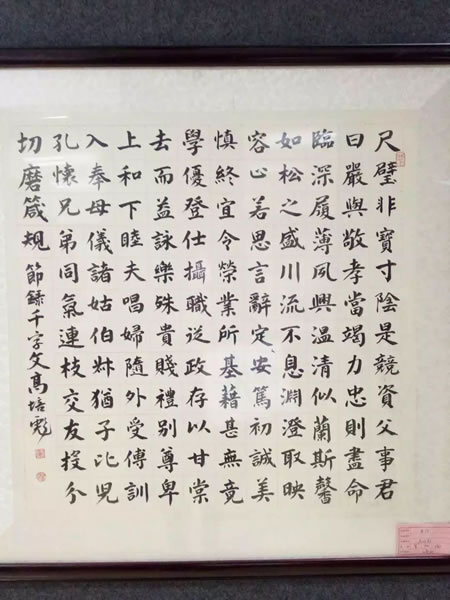 尺璧非寶寸陰是競資父事君
曰嚴與敬孝當竭力忠則盡命
臨深履薄夙興溫清似蘭斯馨
如松之盛川流不息淵澄取映
容止若思言辭定安篤初誠美
慎終宜令榮業所基藉甚無竟
學優登仕攝職從政存以甘棠
去而益詠樂殊貴賤禮別尊卑
上和下睦夫唱婦隨外受傅訓
入奉母儀諸姑伯叔猶子比兒
孔懷兄弟同氣連枝交友投分
切磨箴規 節録千字文高培